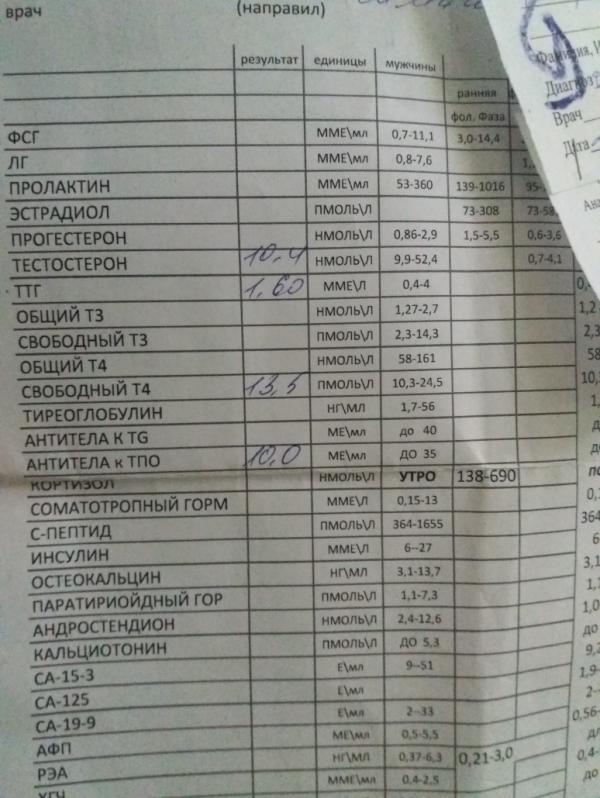 врач (направил)
результат единицы мужчины
ранняя
фол. Фаза
ФСГ ММЕ\мл 0,7-11,1 3,0-14,4
ЛГ ММЕ\мл 0,8-7,6
ПРОЛАКТИН ММЕ\мл 53-360 139-1016
ЭСТРАДИОЛ ПМОЛЬ\Л 73-308
ПРОГЕСТЕРОН НМОЛЬ\Л 0,86-2,9 1,5-5,5 0,6-3,6
ТЕСТОСТЕРОН 10,4 НМОЛЬ\Л 9,9-52,4 0,7-4,1
ТТГ 1,60 ММЕ\Л 0,4-4
ОБЩИЙ Т3 НМОЛЬ\Л 1,27-2,7
СВОБОДНЫЙ Т3 ПМОЛЬ\Л 2,3-14,3
ОБЩИЙ Т4 НМОЛЬ\Л 58-161
СВОБОДНЫЙ Т4 13,5 ПМОЛЬ\Л 10,3-24,5
ТИРЕОГЛОБУЛИН НГ\МЛ 1,7-56
АНТИТЕЛА К TG МЕ\мл до 40
АНТИТЕЛА к ТПО 10,0 МЕ\мл ДО 35
КОРТИЗОЛ НМОЛЬ\Л УТРО 138-690
СОМАТОТРОПНЫЙ ГОРМ ММЕ\Л 0,15-13
С-ПЕПТИД ПМОЛЬ\Л 364-1655
ИНСУЛИН ММЕ\Л 6--27
ОСТЕОКАЛЬЦИН НГ\МЛ 3,1-13,7
ПАРАТИРИОЙДНЫЙ ГОР ПМОЛЬ\Л 1,1-7,3
АНДРОСТЕНДИОН НМОЛЬ\Л 2,4-12,6
КАЛЬЦИОТОНИН ПМОЛЬ\Л ДО 5,3
СА-15-3 Е\мл 9--51
СА-125 Е\мл
СА-19-9 Е\мл 2--33
АФП МЕ\мл 0,5-5,5
РЭА НГ\МЛ 0,37-6,3 0,21-3,0
ХГЧ ММЕ\мл 0,4-2,5
Фамилия, И
Диагноз
Врач
Дата